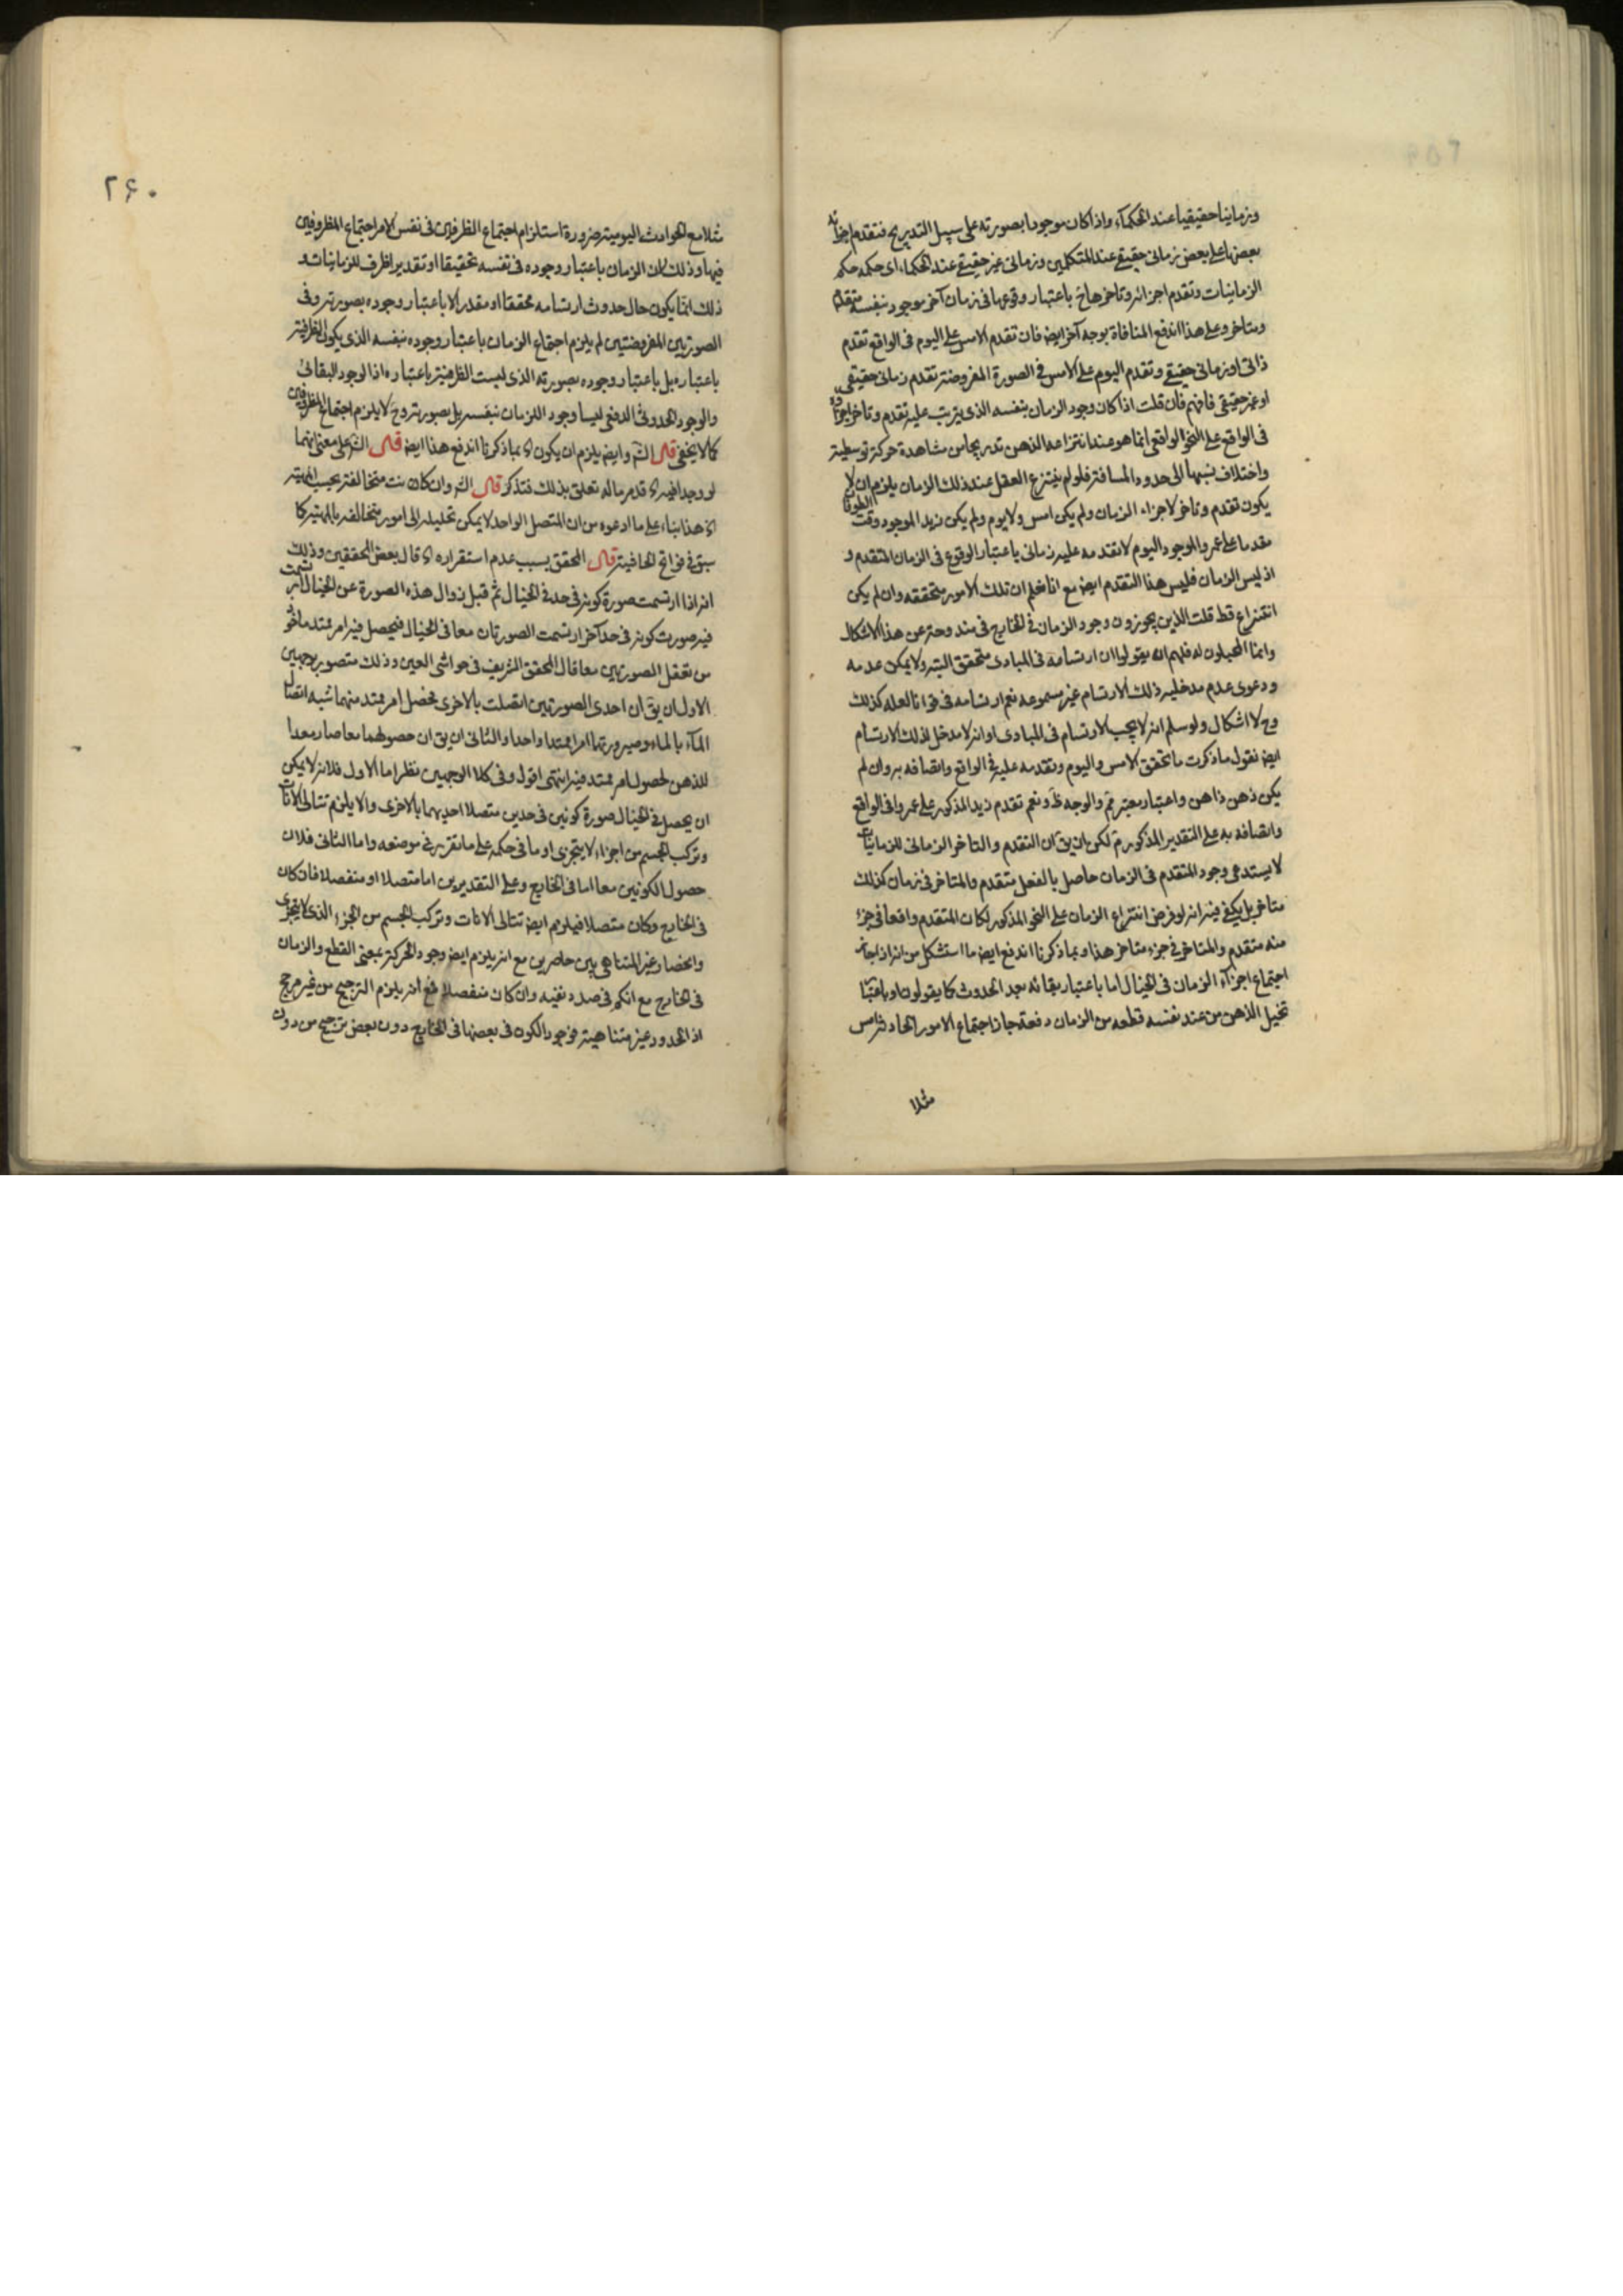 وزمانيا حقيقيا عند الحكماء واذا كان موجودا بصورته على سبيل التدريج فتقدم اجزائه
بعضها على بعض زمانى حقيقى عند المتكلمين وزمانى غير حقيقى عند الحكماء اى حكمه حكم
الزمانيات وتقدم اجزائه وتاخرها ح باعتبار وقوعها فى زمان آخر موجود بنفسه متقدم
ومتاخر وعلى هذا اندفع المنافاة بوجه آخر ايضا فان تقدم الامس على اليوم فى الواقع تقدم
ذاتى او زمانى حقيقى وتقدم اليوم على الامس فى الصورة المفروضة تقدم زمانى حقيقى
او غير حقيقى فافهم فان قلت اذا كان وجود الزمان بنفسه الذى يترتب عليه تقدم وتاخر اجزائه
فى الواقع على النحو الواقعى انما هو عند انتزاعه الذهن تدريجا من مشاهدة حركة توسطية
واختلاف نسبها الى حدود المسافة فلو لم ينتزع العقل عند ذلك الزمان يلزم ان لا
يكون تقدم وتاخر لاجزاء الزمان ولم يكن امس ولا يوم ولم يكن زيد الموجود وقت الطوفان
مقدما على عمرو الموجود اليوم لا تقدمه عليه زمانى باعتبار الوقوع فى الزمان المتقدم و
اذ ليس الزمان فليس هذا التقدم ايضا مع انا نعلم ان تلك الامور متحققه وان لم يكن
انتزاع قط قلت الذين يجوزون وجود الزمان فى الخارج فى مندوحة عن هذا الاشكال
وانما المحيلون له فلهم ان يقولوا ان ارتسامه فى المبادى متحقق البته ولا يمكن عدمه
ودعوى عدم مدخلية ذلك الارتسام غير مسموعه نعم ارتسامه فى قوانا لعله كذلك
وح لا اشكال ولو سلم انه لا يجب الارتسام فى المبادى او انه لا مدخل لذلك الارتسام
ايضا نقول ما ذكرت ما تحقق الامس واليوم وتقدمه عليه فى الواقع واتصافه به وان لم
يكن ذهن ذاهن واعتبار معتبر فم والوجه ظ ونعم تقدم زيد المذكور على عمرو فى الواقع
واتصافه به على التقدير المذكور م لكن ان يق ان التقدم والتاخر الزمانى للزمانيات
لا يستدعى وجود المتقدم فى الزمان حاصل بالفعل متقدم والمتاخر فى زمان كذلك
متاخر بل يكفى فيه انه لو فرض انتزاع الزمان على النحو المذكور لكان المتقدم واقعا فى جزء
منه متقدم والمتاخر فى جزء متاخر هذا وبما ذكرنا اندفع ايضا ما استشكل من انه اذا جاز
اجتماع اجزاء الزمان فى الخيال اما باعتبار بقائه بعد الحدوث كما يقولون او باعتبار
تخيل الذهن من عند نفسه قطعه من الزمان دفعة جاز اجتماع الامور الحادثة امس
مثلا
٢۶٠
مثلا مع الحوادث اليومية ضرورة استلزام اجتماع الظرفين فى نفس الامر اجتماع المظروفين
فيها وذلك لان الزمان باعتبار وجوده فى نفسه تحقيقا او تقديرا ظرف للزمانيات و
ذلك انما يكون حال حدوث ارتسامه محققا او مقدرا لا باعتبار وجوده بصورته وفى
الصورتين المفروضتين لم يلزم اجتماع الزمان باعتبار وجوده بنفسه الذى يكون الظرفية
باعتباره بل باعتبار وجوده بصورته الذى ليست الظرفية باعتباره اذ الوجود البقائى
والوجود الحدوثى الدفعى ليسا وجود الزمان بنفسه بل بصورته وح لا يلزم اجتماع المظروفين
كما لا يخفى قال الش وايضا يلزم ان يكون اه بما ذكرنا اندفع هذا ايضا قال الش على معنى انهما
لو وجدا فيه اه قد مر ما له تعلق بذلك فتذكر قال الش وان كانت متخالفة بحسب المهية
اه هذا بناء على ما ادعوه من ان المتصل الواحد لا يمكن تحليله الى امور متخالفه بالمهية كما
سبق فى فواتح الحاشية قال المحقق بسبب عدم استقراره اه قال بعض المحققين وذلك
انه اذا ارتسمت صورة كونه فى حد فى الخيال ثم قبل زوال هذه الصورة عن الخيال ارتسمت
فيه صورت كونه فى حد آخر ارتسمت الصورتان معا فى الخيال فيحصل فيه امر ممتد ماخوذ
من تعقل الصورتين معا قال المحقق الشريف فى حواشى العين وذلك متصور بوجهين
الاول ان يق ان احدى الصورتين اتصلت بالاخرى فحصل امر ممتد منهما شبه اتصال
الماء بالماء وصيرورتها امرا ممتدا واحدا والثانى ان يق ان حصولهما معا صار معدا
للذهن لحصول امر ممتد فيه انتهى اقول وفى كلا الوجهين نظر اما الاول فلانه لا يمكن
ان يحصل فى الخيال صورة كونين فى حدين متصلا احديهما بالاخرى والا يلزم تتالى الانات
وتركب الجسم من اجزاء لا يتجزى او ما فى حكمه على ما تقرر فى موضعه واما الثانى فلان
حصول الكونين معا اما فى الخارج وعلى التقديرين اما متصلا او منفصلا فان كان
فى الخارج وكان متصلا فيلزم ايضا تتالى الانات وتركب الجسم من الجزء الذى لا يتجزى
وانحصار غير المتناهى بين حاصرين مع انه يلزم ايضا وجود الحركة بمعنى القطع والزمان
فى الخارج مع انكم فى صدد نفيه وان كان منفصلا فمع انه يلزم الترجيح من غير مرجح
اذ الحدود غير متناهية فوجود الكون فى بعضها فى الخارج دون بعض ترجيح من دون